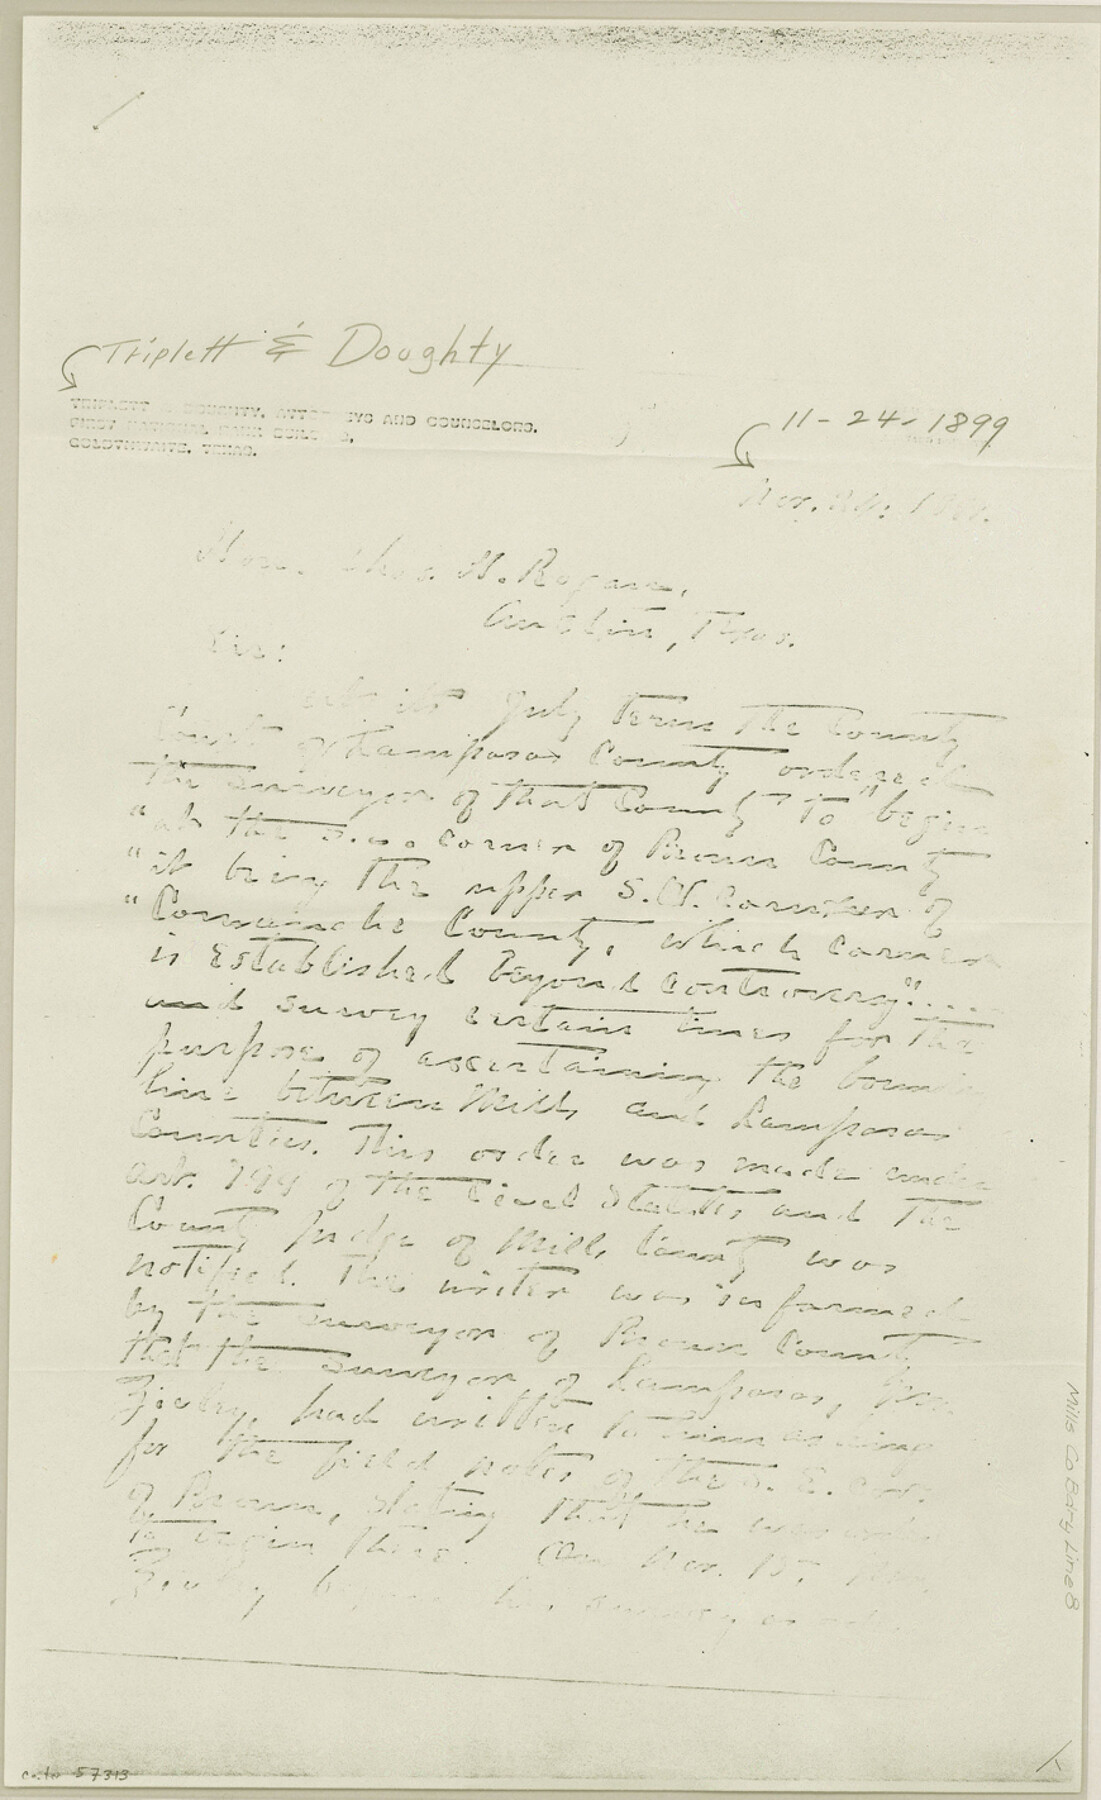 Triplett & Doughty
TRIPLETT & DOUGHTY, ATTORNEYS AND COUNSELORS.
FIRST NATIONAL BANK BUILDING,
GOLDTHWAITE, TEXAS.
11-24-1899
Nov. 24, 1899.
Hon. Chas. H. Rogan,
Austin, Texas.
Sir:
At its July term the County
Court of Lampasas County ordered
the Surveyor of that County to "begin
"at the S.E. corner of Brown County
"it being the upper S.W. corner of
"Comanche County, which corner
is established beyond controversy"....
and survey certain lines for the
purpose of ascertaining the
line between Mills and Lampasas
Counties. This order was made under
Art. of the Civil Statutes and the
County Judge of Mills County was
notified. The writer was informed
by the Surveyor of Brown County
that the Surveyor of Lampasas,
had written to him asking
for the field notes of the S.E. Cor.
of Brown, stating that he
to begin there. On Nov. 15,
his survey
Mills Co Bdry Line 8
57313